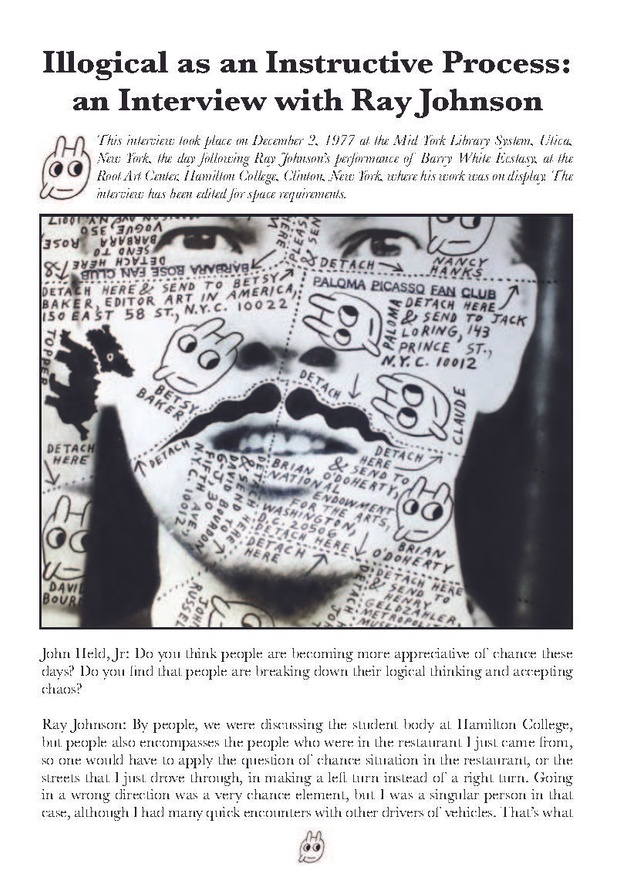 Illogical as an Instructive Process:
an Interview with Ray Johnson
This interview took place on December 2, 1977 at the Mid York Library System, Utica,
New York, the day following Ray Johnson's performance of Barry White Ecstasy, at the
Root Art Center, Hamilton College, Clinton, New York, where his work was on display. The
interview has been edited for space requirements.
VOGUE 350
BARBARA ROSE
SEND TO
DETACH HERE &
BARBARA ROSE FAN CLUB
DETACH
NANCY
HANKS
DETACH HERE & SEND TO BETSY
BAKER, EDITOR ART IN AMERICA,
150 EAST 58 ST., N.Y.C. 10022
PALOMA PICASSO FAN CLUB
DETACH HERE
& SEND TO JACK
LORING, 143
PRINCE ST.,
N.Y.C. 10012
PALOMA
TOPPER
BETSY
BAKER
DETACH
CLAUDE
DETACH
HERE
DETACH
DETACH
HERE
& SEND TO
BRIAN O'DOHERTY,
NATIONAL
ENDOWMENT
FOR THE ARTS,
WASHINGTON,
D.C. 20506
DETACH HERE
DETACH
HERE
DETACH
HERE
& SEND TO
DAVID BOURDON
FIFTH AVE
N.Y.C. 10012
BRIAN
O'DOHERTY
DAVID
BOUR
DETACH HERE
& SEND TO
HENRY
GELDZAHLER,
METROPOLIT
John Held, Jr: Do you think people are becoming more appreciative of chance these
days? Do you find that people are breaking down their logical thinking and accepting
chaos?
Ray Johnson: By people, we were discussing the student body at Hamilton College,
but people also encompasses the people who were in the restaurant I just came from,
so one would have to apply the question of chance situation in the restaurant, or the
streets that I just drove through, in making a left turn instead of a right turn. Going
in a wrong direction was a very chance element, but I was a singular person in that
case, although I had many quick encounters with other drivers of vehicles. That's what